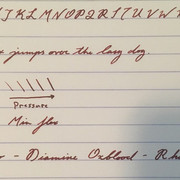 I J K L M N O P Q R S T U V W X
jumps over the lazy dog.
Pressure
Min flow
- Diamine Oxblood - Rh